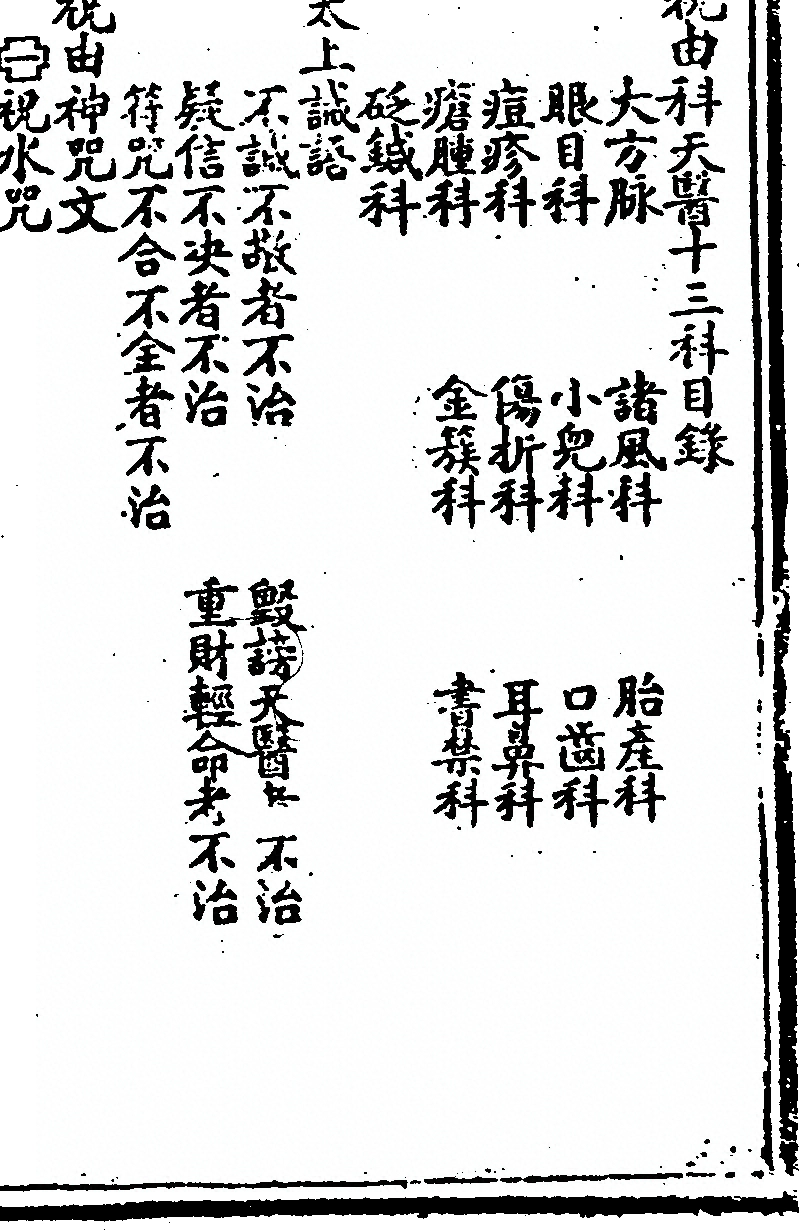 祝由科天醫十三科目錄
大方脉 諸風科 胎產科
眼目科 小兒科 口齒科
痘疹科 傷折科 耳鼻科
瘡腫科 金簇科 書禁科
砭鍼科
太上誡語
不誠不敬者不治 毀謗天醫 不治
疑信不决者不治 重財輕命者不治
符咒不合不全者不治
祝由神咒文
祝水咒